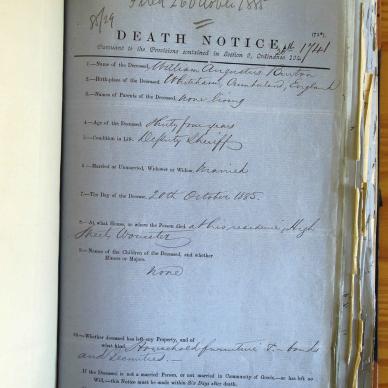 Filed 26 October 1885
DEATH NOTICE
Pursuant to the Provisions contained in Section 9, Ordinance 104
1.—Name of the Deceased, William Augustus
2.—Birth-place of the Deceased, Whitehaven, Cumberland, England
3.—Names of Parents of the Deceased,
4.—Age of the Deceased, Thirty four years
5.—Condition in Life, Deputy Sheriff
6.—Married or Unmarried, Widower or Widow, Married
7.—The Day of the Decease, 20th October 1885.
8.—At what House, or where the Person died, at his residence, High
Street Worcester
9.—Names of the Children of the Deceased, and whether
Minors or Majors.
None
10.—Whether deceased has left any Property, and of
what kind, Household furniture & - bonds
and Securities. —
If the Deceased is not a married Person, or not married in Community of Goods,—or has left no
Will,—this Notice must be made within Six Days after death.